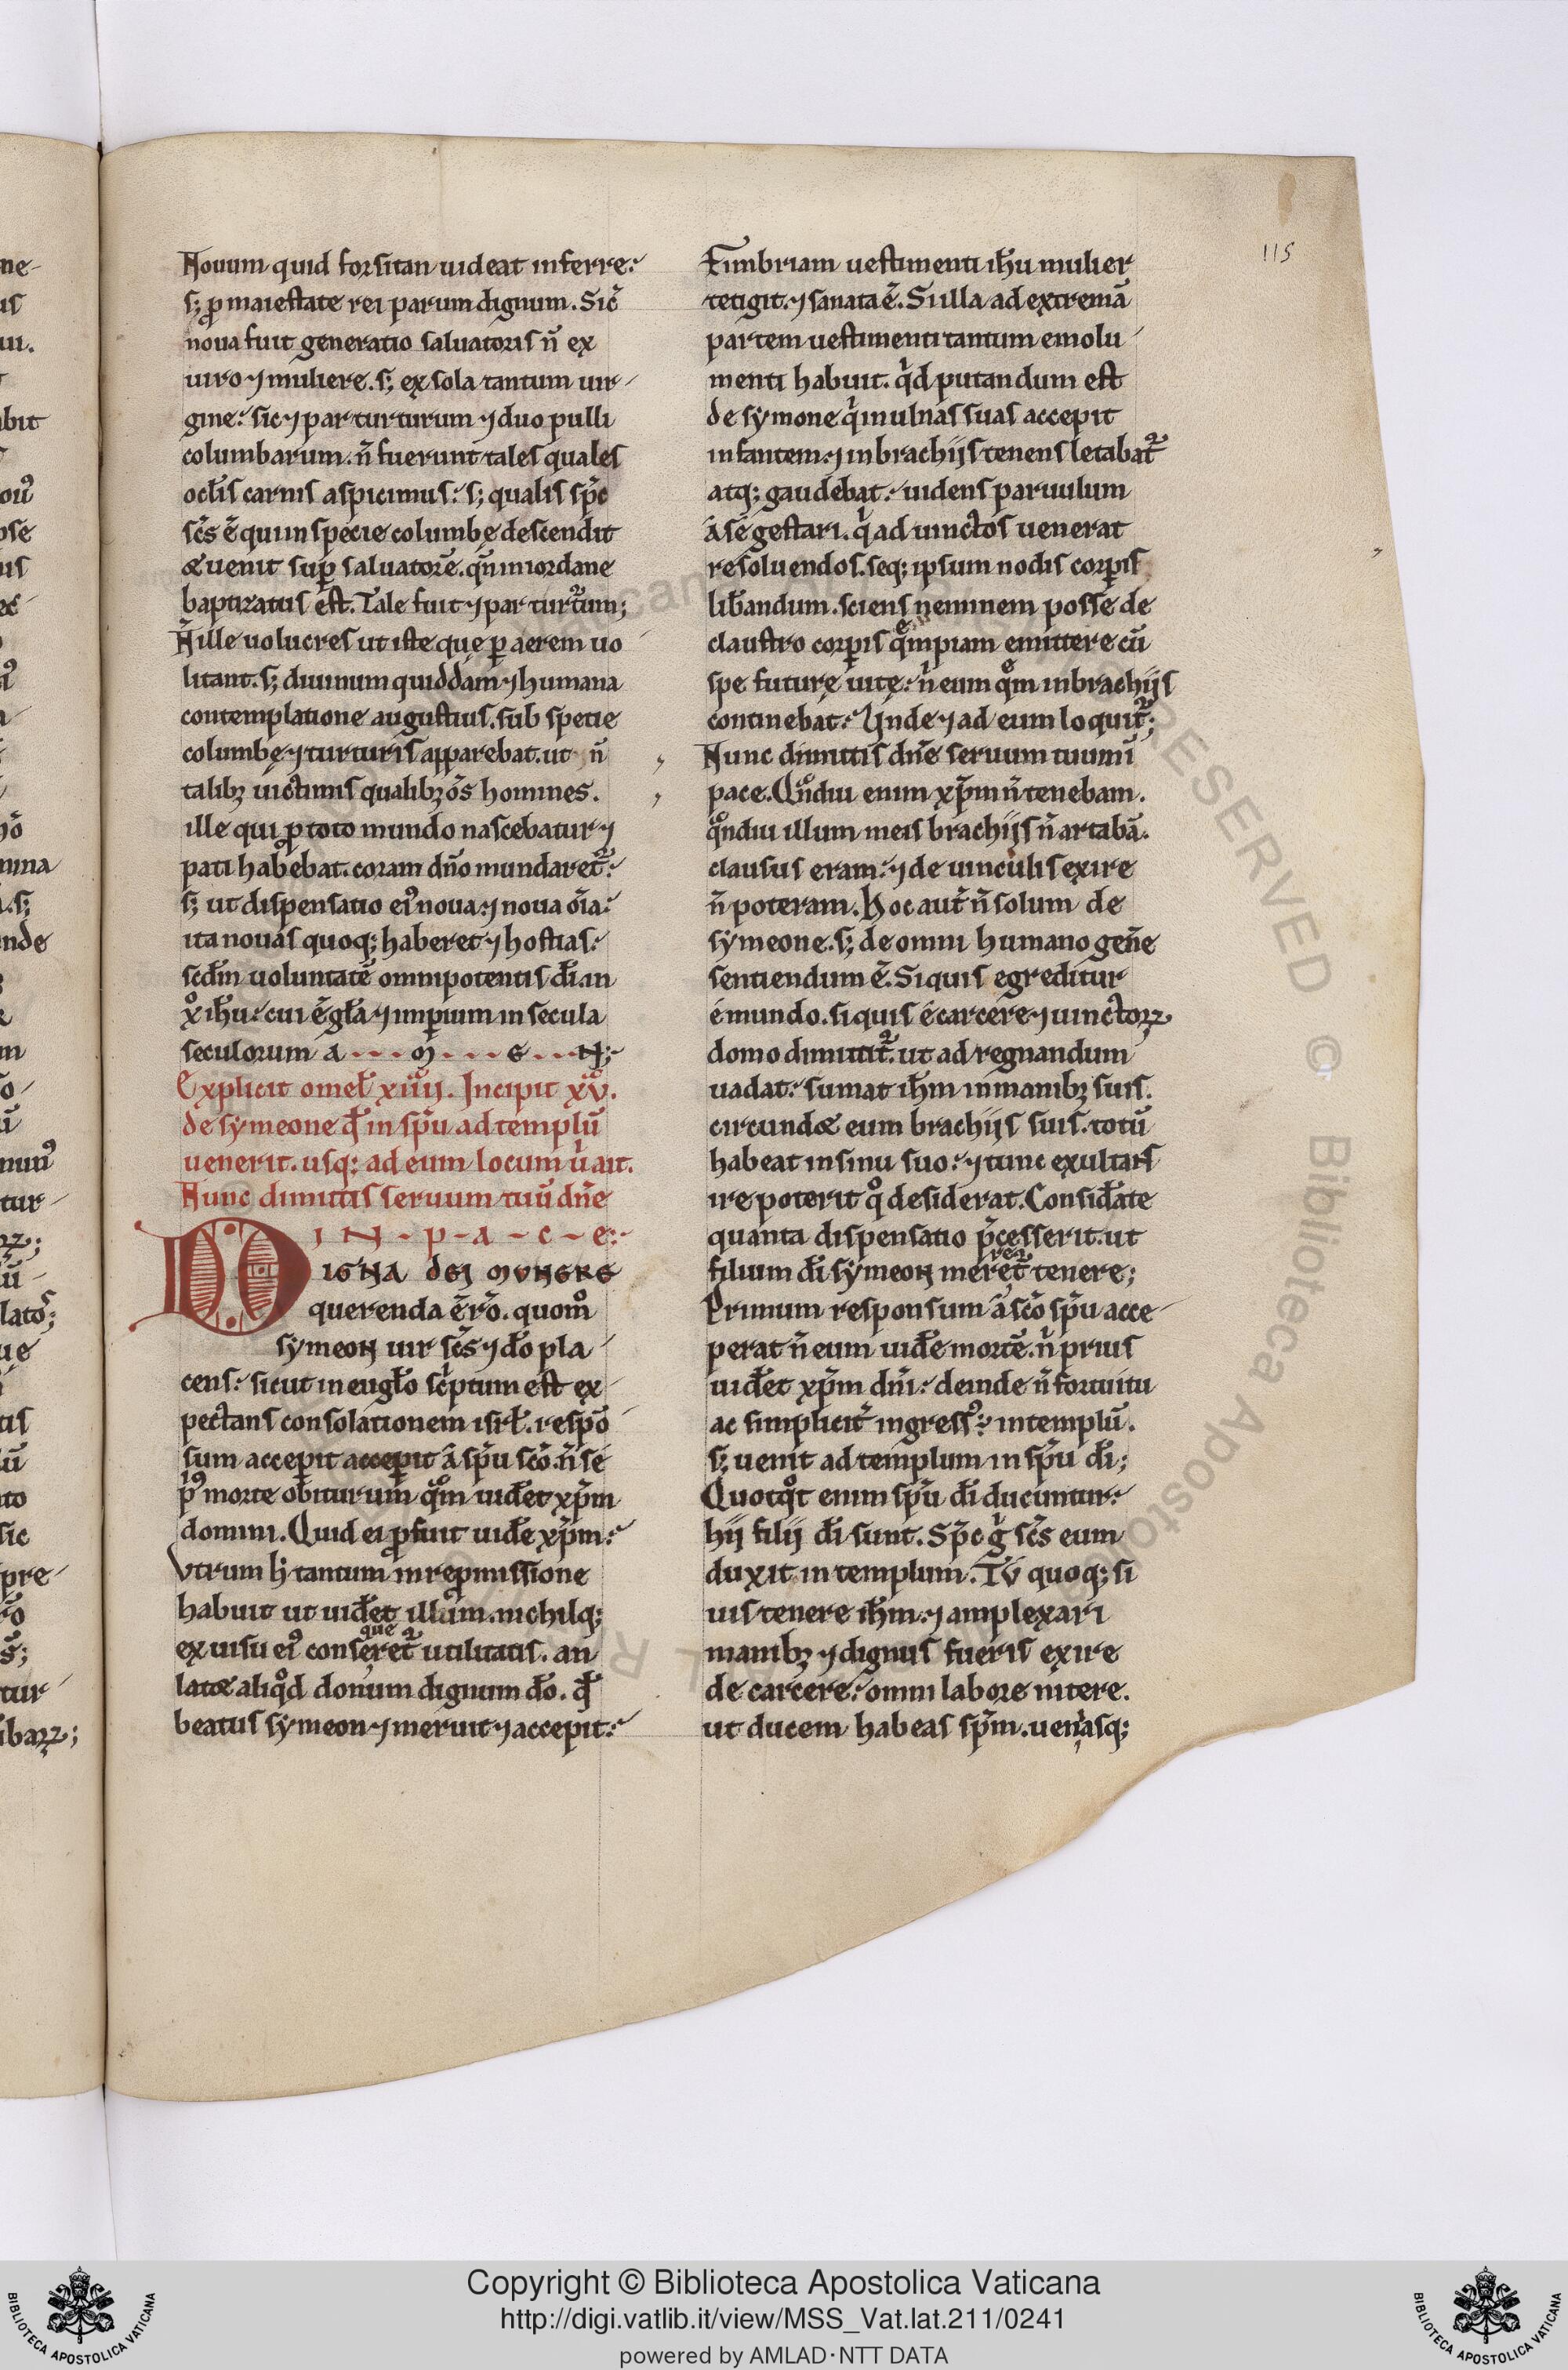 115
Nouum quid forsitan uideat inferre:
s; ꝓ maiestate rei parum dignum. Sic̄
noua fuit generatio saluatoris n̄ ex
uiro ⁊ muliere. s; ex sola tantum uir-
gine: sic ⁊ par turturum ⁊ duo pulli
columbarum. n̄ fuerunt tales quales
oclis carnis aspicimus: s; qualis sp̄c
sc̄s ē qui in specie columbę descendit
& uenit suꝑ saluatorē. qn̄ in iordane
baptizatus est. Tale fuit ⁊ par turtum;
N̄ ille uolucres ut iste que ꝑ aerem uo
litant. s; diuinum quiddam ⁊ humana
contemplatione augustius. sub specie
columbę ⁊ turturis apparebat. ut n̄
talibꝫ uictimis qualibꝫ om̄s homines.
ille qui ꝓ toto mundo nascebatur ⁊
pati habebat. coram dn̄o mundaret᷑:
s; ut dispensatio eiꝰ noua: ⁊ noua oīa:
ita nouas quoq; haberet ⁊ hostias:
scd̄m uoluntatē omnipotentis dī. in
xͦ ih̄u: cui ē gła ⁊ imꝑium in secula
seculorum a . . . m . . . e . . . N;
Explicit omeł xiiij. Incipit xv.
de symeone qđ in sp̄u ad templū
uenerit. usq; ad eum locum ù ait.
Nunc dimittis seruum tuū dn̄e
I N - p - a - c - e:
DIGNA DEI MUNERE
querenda ē r̄o. quom̊
symeon uir sc̄s ⁊ đo pla
cens: sicut in eugło sc̍ptum est ex
pectans consolationem isrł. respō
sum accepit accepit ā sp̄u scō. n̄ se
pꝰ morte obiturum qͦm uid̄et xp̄m
domini. Quid ei ꝓfuit uid̄e xp̄m:
Vtrum h̍ tantum in repmissione
habuit ut uid̄et illum. nichilq;
ex uisu eiꝰ conseque ret᷑ utilitatis. an
lat& aliqͦd donum dignum đo. qđ
beatus symeon ⁊ meruit ⁊ accepit:
Fimbriam uestimenti ih̄u mulier
tetigit. ⁊ sanata ē. Si illa ad extremā
partem uestimenti tantum emolu
menti habuit. q̍d putandum est
de symone q̍ in ulnas suas accepit
infantem: ⁊ in brachijs tenens letabat᷑
atq; gaudebat: uidens paruulum
á se gestari. q̍ ad uinctos uenerat
resoluendos. seq; ipsum nodis corꝑis
lib̄andum. sciens neminem posse de
claustro corꝑis quempiam emittere cū
spe futurę uitę: n̍ eum qͤm in brachijs
continebat: Unde ⁊ ad eum loquit᷑;
Nunc dimittis dn̄e seruum tuum ī
pace. Qͦndiu enim xp̄m n̄ tenebam.
qͦndiu illum meis brachijs n̄ artabā.
clausus eram: ⁊ de uinculis exire
n̄ poteram. Hoc aut̄ n̄ solum de
symeone. s; de omni humano gen̄e
sentiendum ē. Si quis egreditur
é mundo. si quis é carcere ⁊ uinctoꝝ
domo dimittit᷑. ut ad regnandum
uadat: sumat ih̄m in manibꝫ suis.
circund& eum brachijs suis. totū
habeat in sinu suo: ⁊ tunc exultans
ire poterit qͦ desiderat. Consid̄ate
quanta dispensatio p̄cesserit. ut
filium dī symeon mereret᷑ tenere;
Primum responsum ā scō sp̄u acce
perat n̄ eum uid̄e mortē. n̍ prius
uid̄et xp̄m dn̄i: deinde n̄ fortuitu
ac simplicit̄ ingressꝰ: in templū.
s; uenit ad templum in sp̄u dī;
Quotqͦt enim sp̄u dī ducuntur:
hij filij dī sunt. Sp̄c g̍ sc̄s eum
duxit in templum. Tu quoq; si
uis tenere ih̄m. ⁊ amplexari
manibꝫ ⁊ dignus fueris exire
de carcere: omni labore nitere.
ut ducem habeas sp̄m. ueniasq;
Copyright © Biblioteca Apostolica Vaticana
http://digi.vatlib.it/view/MSS_Vat.lat.211/0241
powered by AMLAD·NTT DATA
BIBLIOTECA APOSTOLICA VATICANA
BIBLIOTECA APOSTOLICA VATICANA